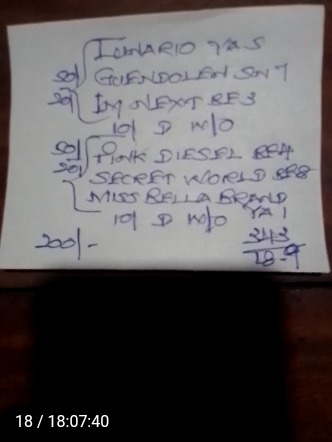 ICHNARIO YA S
50/ GUENDOLEN SN 7
20/ IM NEXT BE 3
10/ D W/O
50/ PINK DIESEL BE4
20/ SECRET WORLD BE8
MISS BELLA BRAND
10/ D W/O YA 1
200/- 243
18-9
18 / 18:07:40